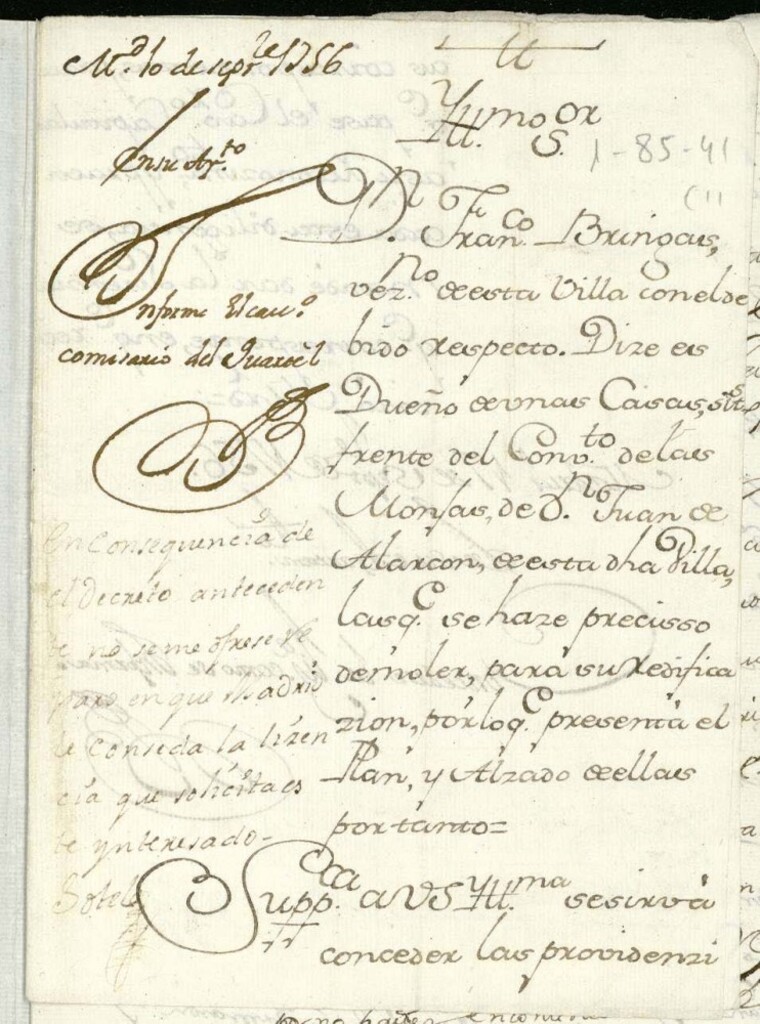 M.d 10 de sepre 1756
En su Ay.to
Informe el cav.o
comisario del Quartel
En Consequencia de
el Decreto anteceden
te no se me ofrese re
paro en que Madrid
le conseda la lizen
cia que solicita es
te ynteresado-
Sotelo
Yll.mo S.or
1-85-41
(11
D.n Fran.co Bringas,
vez.no de esta Villa con el de
bido respecto. Dize es
Dueño de unas Casas, sitas
frente del Conv.to de las
Monjas, de D.n Juan de
Alarcon, de esta dha Villa,
las q.e se haze precisso
demoler, para su redifica
zion, por lo q.e presenta el
Plan, y Alzado de ellas
por tanto=
Supp.ca a VS Yll.ma se sirva
conceder las providenzi